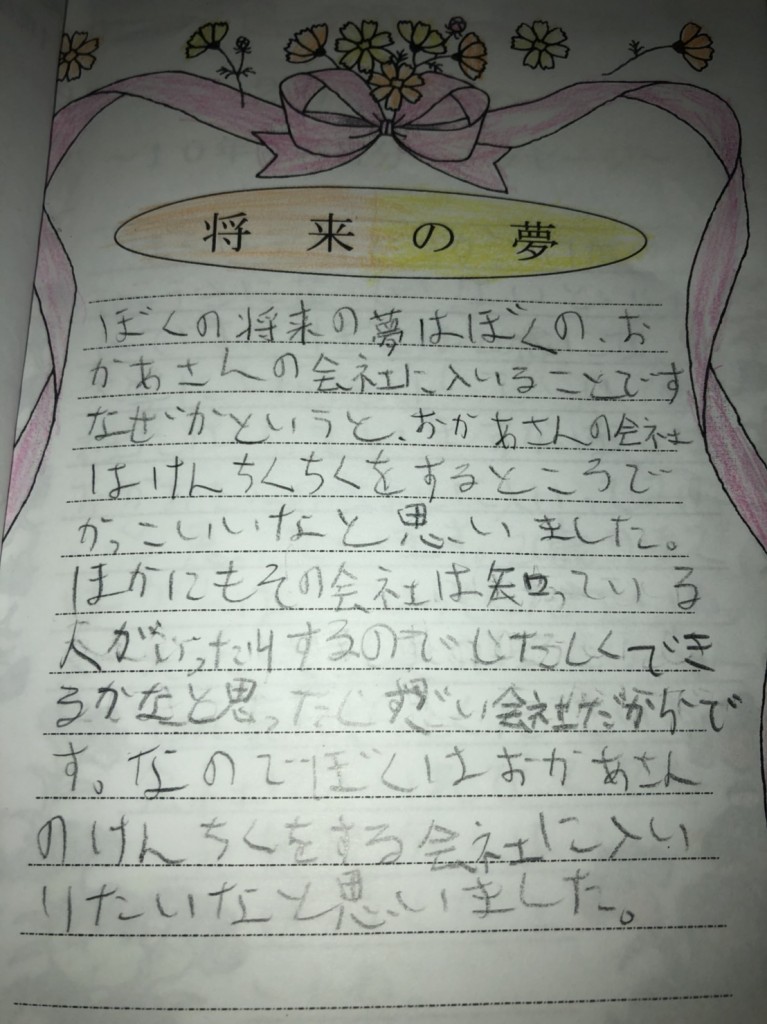 将来の夢
ぼくの将来の夢はぼくの、お
かあさんの会社に入いることです
なぜかというと、おかあさんの会社
はけんちくちくをするところで
かっこいいなと思いました。
ほかにもその会社は知っている
人がいったりするのでしたしくでき
るかなと思ったしすごい会社だからで
す。なのでぼくはおかあさん
のけんちくをする会社に入い
りたいなと思いました。